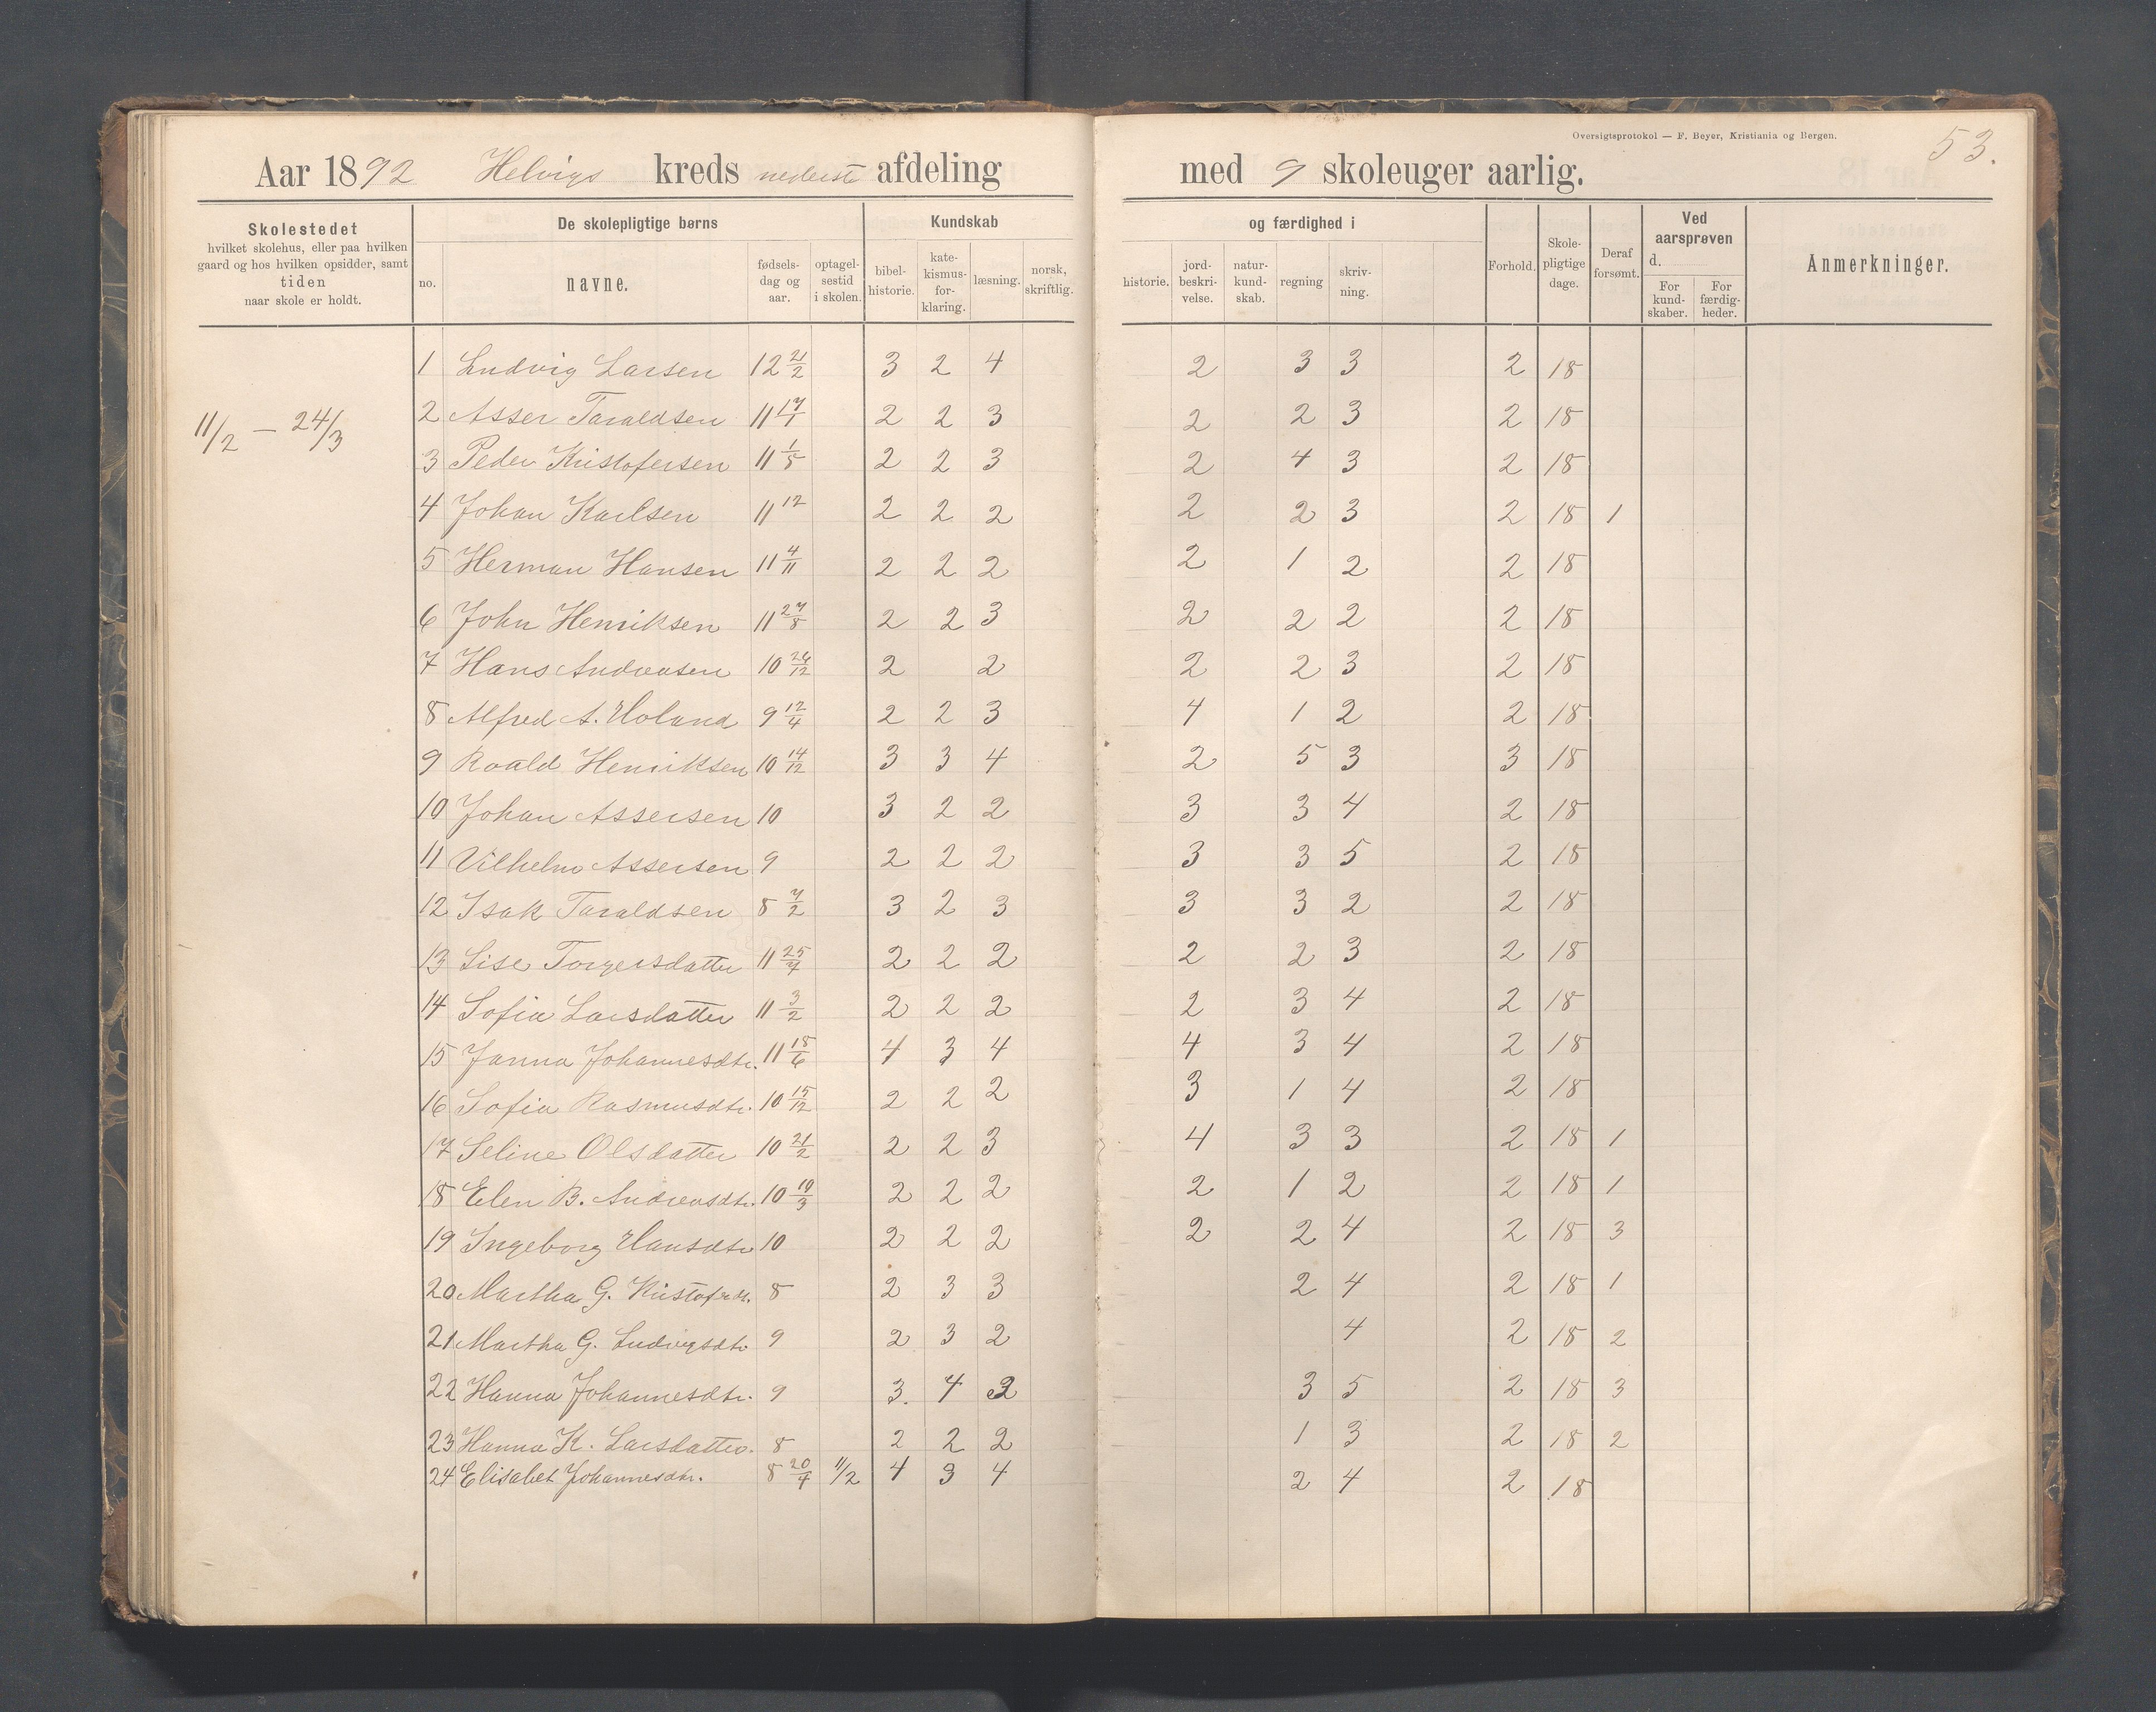 Oversigtsprotokol — F. Beyer, Kristiania og Bergen.
53.
Aar 1892 Helvigs kreds nederste afdeling med 9 skoleuger aarlig.
Skolestedet
hvilket skolehus, eller paa hvilken
gaard og hos hvilken opsidder, samt
tiden
naar skole er holdt.
De skolepligtige børns
no. navne. fødsels-dag og aar. optagel-sestid i skolen.
Kundskab og færdighed i
bibel-historie. kate-kismus-for-klaring. læsning. norsk, skriftlig. historie. jord-beskri-velse. natur-kund-skab. regning skriv-ning.
Forhold. Skole-pligtige dage. Deraf forsømt.
Ved aarsprøven d.
For kund-skaber. For færdig-heder.
Anmerkninger.
11/2 — 24/3
1 Ludvig Larsen 12 21/2 3 2 4 2 3 3 2 18
2 Asser Taraldsen 11 17/1 2 2 3 2 2 3 2 18
3 Peder Kristofersen 11 1/8 2 2 3 2 4 3 2 18
4 Johan Karlsen 11 12 2 2 2 2 2 3 2 18 1
5 Herman Hansen 11 4/11 2 2 2 2 1 2 2 18
6 John Henriksen 11 27/8 2 2 3 2 2 2 2 18
7 Hans Andreasen 10 26/12 2 2 2 2 3 2 18
8 Alfred A. Holand 9 12/4 2 2 3 4 1 2 2 18
9 Roald Henriksen 10 14/12 3 3 4 2 5 3 3 18
10 Johan Assersen 10 3 2 2 3 3 4 2 18
11 Vilhelm Assersen 9 2 2 2 3 3 5 2 18
12 Isak Taraldsen 8 7/2 3 2 3 3 3 2 2 18
13 Lise Torgersdatter 11 25/4 2 2 2 2 2 3 2 18
14 Sofia Larsdatter 11 3/2 2 2 2 2 3 4 2 18
15 Janna Johannesdtr. 11 18/6 4 3 4 4 3 4 2 18
16 Sofia Rasmusdtr. 10 15/12 2 2 2 3 1 4 2 18
17 Seline Olsdatter 10 21/2 2 2 3 4 3 3 2 18 1
18 Elen B. Andreasdtr. 10 10/3 2 2 2 2 1 2 2 18 1
19 Ingeborg Hansdtr 10 2 2 2 2 2 4 2 18 3
20 Martha G. 8 2 3 3 2 4 2 18 1
21 Martha G. Ludvigsdtr 9 2 3 2 4 2 18 2
22 Hanna Johannesdtr. 9 3. 4 3 5 2 18 3
23 Hanna K. Larsdatter. 8 2 2 2 1 3 2 18 2
24 Elisabet Johannesdtr. 8 20/4 11/2 4 3 4 2 4 2 18